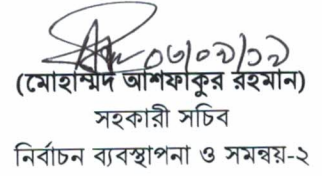 ০৩/০২/১৯
(মোহাম্মদ আশফাকুর রহমান)
সহকারী সচিব
নির্বাচন ব্যবস্থাপনা ও সমন্বয়-২